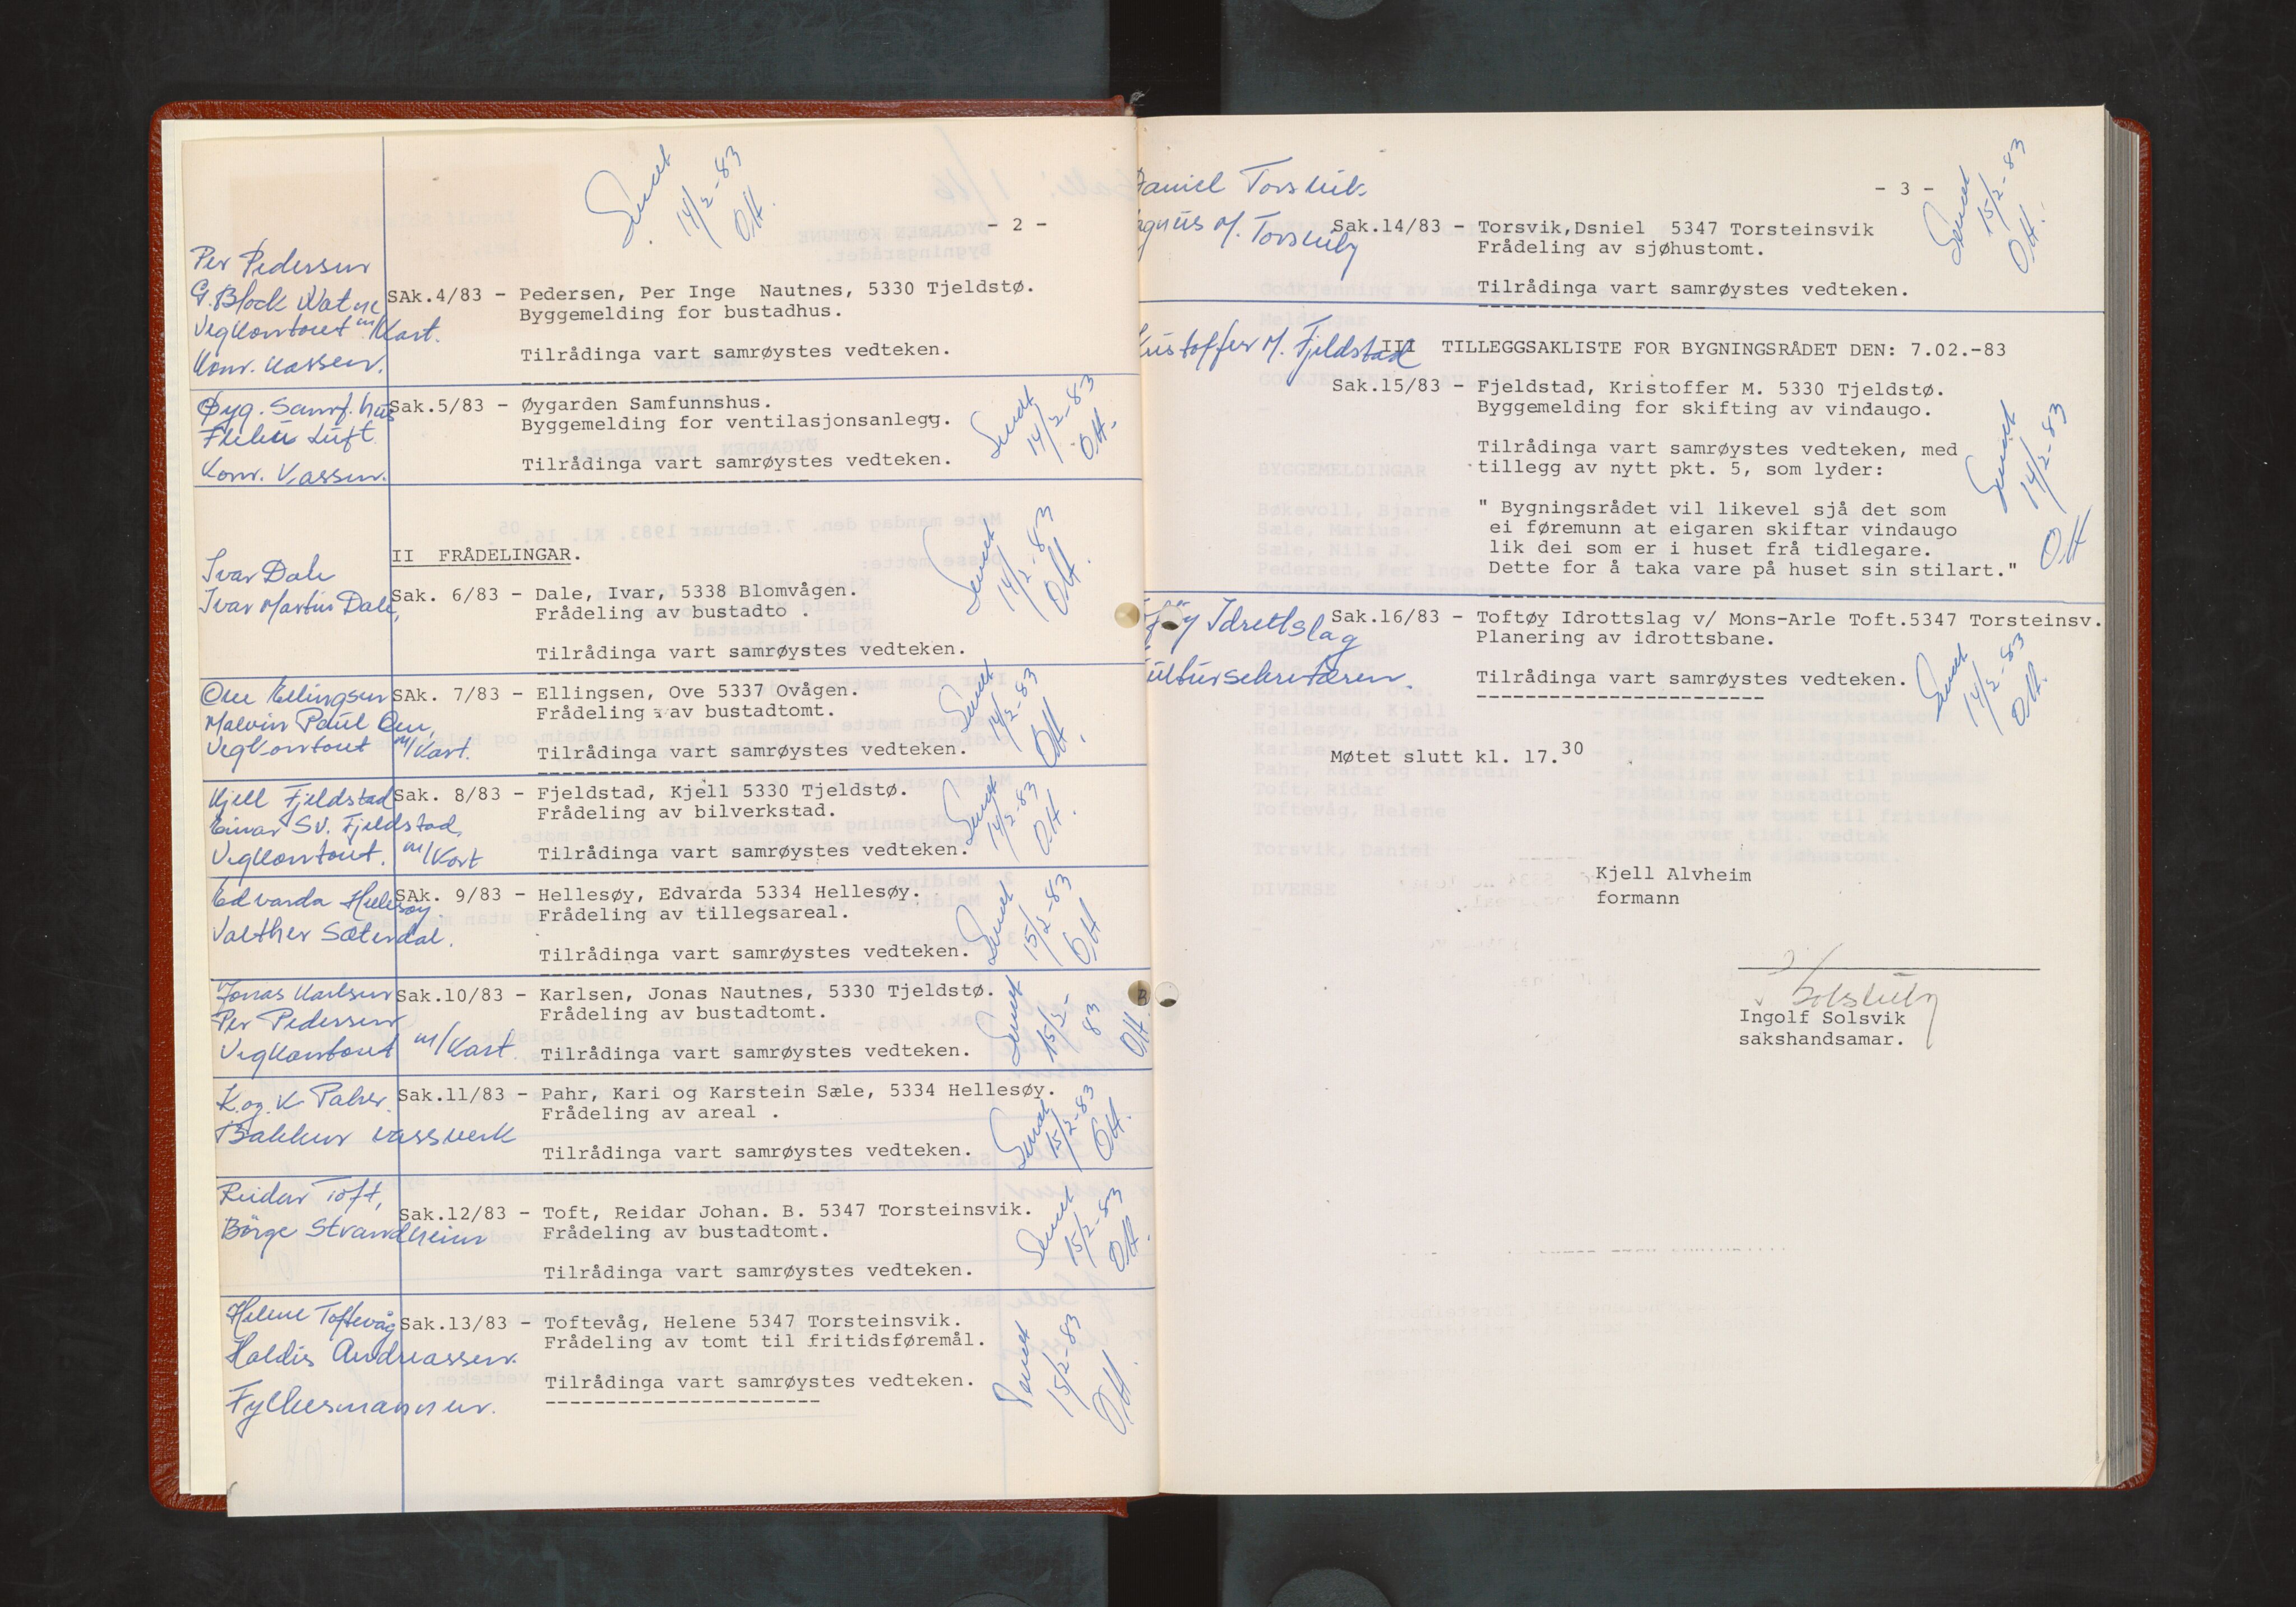 Sendt
14/2-83
OH.
- 2 -
Per Pedersen
G. Block Watne
Vegkontoret m/Kart.
Konr. Kassen.
SAk.4/83 - Pedersen, Per Inge  Nautnes, 5330 Tjeldstø.
Byggemelding for bustadhus.
Tilrådinga vart samrøystes vedteken.
Øyg. Samf. hus
Luft
Konr. Kassen.
Sak.5/83 - Øygarden Samfunnshus.
Byggemelding for ventilasjonsanlegg.
Tilrådinga vart samrøystes vedteken.
Sendt
14/2-83
OH.
II  FRÅDELINGAR.
Ivar Dale
Ivar Martin Dale,
Sak. 6/83 - Dale, Ivar, 5338 Blomvågen.
Frådeling av bustadto .
Tilrådinga vart samrøystes vedteken.
Sendt
14/2-83
OH.
Ove Ellingsen
Malvin Paul Ove,
Vegkontoret m/Kart.
SAk. 7/83 - Ellingsen, Ove 5337 Ovågen.
Frådeling av bustadtomt.
Tilrådinga vart samrøystes vedteken.
Sendt
14/2-83
OH.
Kjell Fjeldstad
Einar Sv. Fjeldstad,
Vegkontoret. m/Kart
Sak. 8/83 - Fjeldstad, Kjell 5330 Tjeldstø.
Frådeling av bilverkstad.
Tilrådinga vart samrøystes vedteken.
Sendt
14/2-83
OH.
Edvarda Hellesøy
Valther Sæterdal.
SAk. 9/83 - Hellesøy, Edvarda 5334 Hellesøy.
Frådeling av tillegsareal.
Tilrådinga vart samrøystes vedteken.
Sendt
15/2-83
OH
Jonas Karlsen
Per Pedersen
Vegkontoret m/Kart.
Sak.10/83 - Karlsen, Jonas Nautnes, 5330 Tjeldstø.
Frådeling av bustadtomt.
Tilrådinga vart samrøystes vedteken.
Sendt
15/2-
83
OH.
K. og K Pahr.
Bakken vassverk
Sak.11/83 - Pahr, Kari og Karstein Sæle, 5334 Hellesøy.
Frådeling av areal .
Tilrådinga vart samrøystes vedteken.
Sendt
15/2-83
OH.
Reidar Toft,
Børge Strandheim
Sak.12/83 - Toft, Reidar Johan. B. 5347 Torsteinsvik.
Frådeling av bustadtomt.
Tilrådinga vart samrøystes vedteken.
Sendt
15/2-83
OH.
Helene Toftevåg
Haldis Andreassen.
Fylkesmannen.
Sak.13/83 - Toftevåg, Helene 5347 Torsteinsvik.
Frådeling av tomt til fritidsføremål.
Tilrådinga vart samrøystes vedteken.
Sendt
15/2-83
OH
- 3 -
Daniel Torsvik
agnus M. Torsvik
Sak.14/83 - Torsvik,Dsniel  5347 Torsteinsvik
Frådeling av sjøhustomt.
Tilrådinga vart samrøystes vedteken.
Sendt
15/2-83
OH.
ristoffer M. Fjeldstad
III  TILLEGGSAKLISTE FOR BYGNINGSRÅDET DEN: 7.02.-83
Sak.15/83 - Fjeldstad, Kristoffer M. 5330 Tjeldstø.
Byggemelding for skifting av vindaugo.
Tilrådinga vart samrøystes vedteken, med
tillegg av nytt pkt. 5, som lyder:
" Bygningsrådet vil likevel sjå det som
ei føremunn at eigaren skiftar vindaugo
lik dei som er i huset frå tidlegare.
Dette for å taka vare på huset sin stilart."
Sendt
14/2-83
OH
øy Idrettslag
ultursekretæren.
Sak.16/83 - Toftøy Idrottslag v/ Mons-Arle Toft.5347 Torsteinsv.
Planering av idrottsbane.
Tilrådinga vart samrøystes vedteken.
Sendt
14/2-83
OH.
Møtet slutt kl. 17.30
Kjell Alvheim
formann
I. Solsvik
Ingolf Solsvik
sakshandsamar.